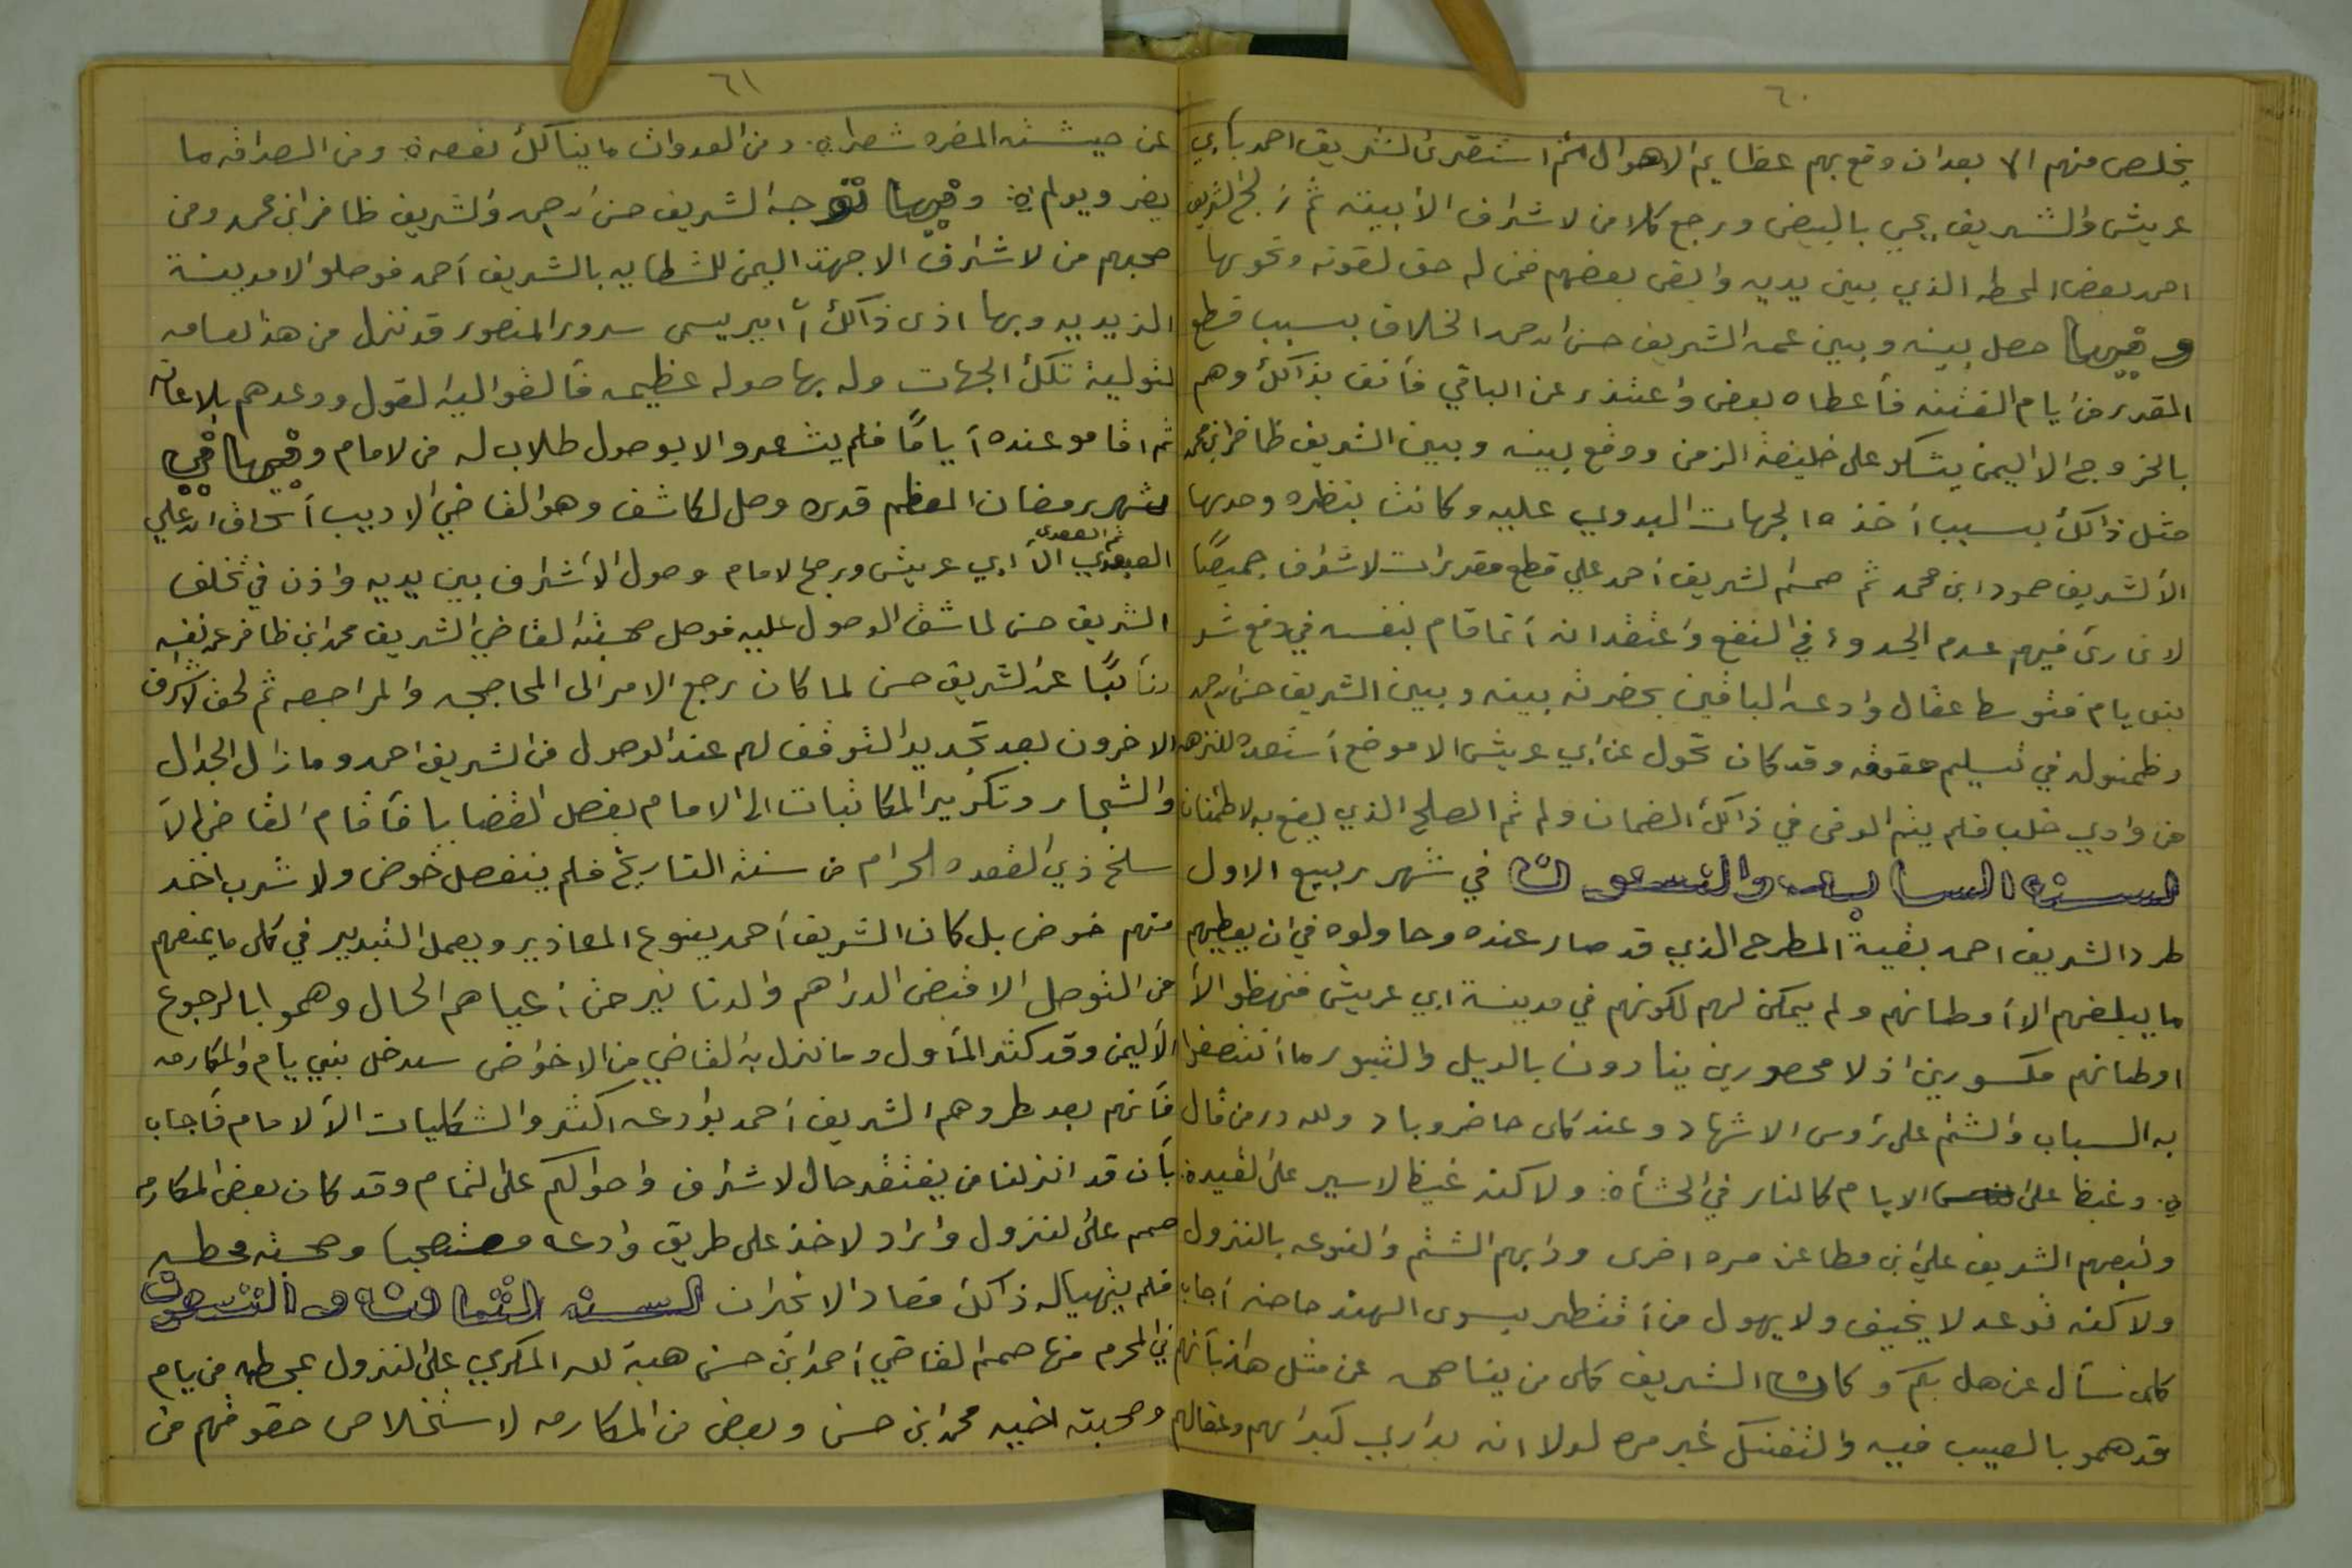 ٦٠
يخلص منهم الا بعد ان وقع بهم عظايم الاهوال ثم استقرى الشريف احمد بأبي
عريش والشريف يحي بالبيض ورجع كلا من لاشراف الأ بيته ثم الشريف
احمد بعض المحطه الذي بين يديه وابقى بعضهم فمن له حق لقوته ونحوها
وفيها حصل بينه وبين عمه الشريف حسن ابن احمد الخلاف بسبب قطع
المقدر من ايام الفتنه فأعطاه بعض واعتذر عن الباقي فأنف بذالك وهم
بالخروج الا اليمن يشكو على خليفة الزمن ووقع بينه وبين الشريف ظافر ابن محمد
مثل ذالك بسبب أخذه الجهات البدوي عليه وكانت بنظره وحدها
الأ لشريف حمود ابن محمد ثم صمم الشريف أحمد علي قطع مقدرات لاشراف جميعًا
لان رئ فيهم عدم الجدوء في النفع واعتقد انه أنما قام بنفسه في دفع شر
بنى يام فتوسط عقال وادعه الباقين بحضرته بينه وبين الشريف حسن ابن احمد
وظمنوله في تسليم حقوقه وقد كان تحول عن ابي عريش الا موضع أستعده للنزهه
من وادي خلب فلم يتم الوفى في ذالك الضمان ولم تم الصلح الذي يقع به لاطمئنان
السنه السابعه والتسعون في شهر ربيع الاول
طرد الشريف احمد بقية المطرح الذي قد صار عنده وحاولوه في ان يعطيهم
ما يبلغهم الا أوطانهم ولم يمكن لهم لكونهم في مدينة ابي عريش فنهظو الأ
اوطانهم مكسورين اذ لا محصورين ينادون بالويل والثبور ما أنتصفو
به السباب والشتم على رؤس الاشهاد وعند كل حاضر وباد ولله در من قال
وغيظا على الايام كالنار في الحشأ ه: ولاكنه غيظ لاسير على القيد ه:
وتبعهم الشريف علي ابن مطاعن مره اخرى ودابهم الشتم والتوعد بالنزول
ولاكنه توعد لا يخيف ولا يهول من أقتطر بسوى الهند حاصنه أجاب
كل نسأل عن هل بكم وكان الشريف كل من يناصحه عن مثل هاذ بأنهم
قد همو بالعيب فيه والتفتك غير مره لولا انه يداري كبدائهم وعقالهم
٦١
عن حيشته المضره شطر ه: ومن العدوات ما ينالك نفعه ه ومن الصداقه ما
يضر ويولم ه: وفيها توجه الشريف حسن ابن احمد والشريف ظافر ابن محمد ومن
صحبهم من لاشراف الا جهة اليمن للشطايه بالشريف أحمد فوصلو الا مدينة
الزيديه وبها اذى ذالك أ امير يسمى سرور المنصور قد نزل من هذ لعامه
لتولية تلك الجهات وله بها صوله عظيمه فألقو اليه القول ووعدهم بلاعانه
ثم اقامو عنده أيامًا فلم يشعرو الا بوصول طلاب له من لامام وفيها في
شهر رمضان المعظم قدره وصل لكاشف وهو القاضي الاديب أسحاق ابن علي
العبدي الأ ابي عريش ورجح لامام وصول الأشراف بين يديه واذن في تخلف
الشريف حسن لما شق الوصول عليه فوصل صحبته القاضي الشريف محمد ابن ظافر عن نفسه
ونأيبًا عن الشريف حسن لما كان رجع الامر الى المحاججه والمراجعه ثم لحق لاشراف
الاخرون بعد تجديد التوقف لهم عند الوصول من الشريف احمد وما زال الجدال
والشجار وتكرير المكاتبات الى الامام بفصل القضايا فأقام القاضي الأ
سلخ ذي القعده الحرام من سنة التاريخ فلم ينفصل خوض ولا شرب اخذ
منهم خوض بل كان الشريف أحمد ينوع المعاذير ويعمل التدبير في كل ما يمنعهم
من التوصل الا قبض الدراهم والدنانير حتى أعياهم الحال وهمو ابالرجوع
الأ ليمن وقد كثر المأول وما نزل به القاضي من الاخواض سدخل بني يام والمكارمه
فأنهم بعد طردهم الشريف أحمد بوادعه اكثرو الشكليات الأ لامام فأجاب
بأن قد انزلنا من يفتقد حال لاشراف واحوالكم على التمام وقد كان بعض المكارمه
صمم على لنزول واراد لاخذ على طريق وادعه مستصحبا وصحبته محطه
فلم يتهياله ذالك فعاد الا نجران السنه الثامنه والتسعون
في المحرم منها صمم القاضي أحمد ابن حسن هبة لله المكرمي على النزول بمحطه من يام
وصحبته اخيه محمد ابن حسن وبعض من المكارمه لاستخلاص حقوقهم من